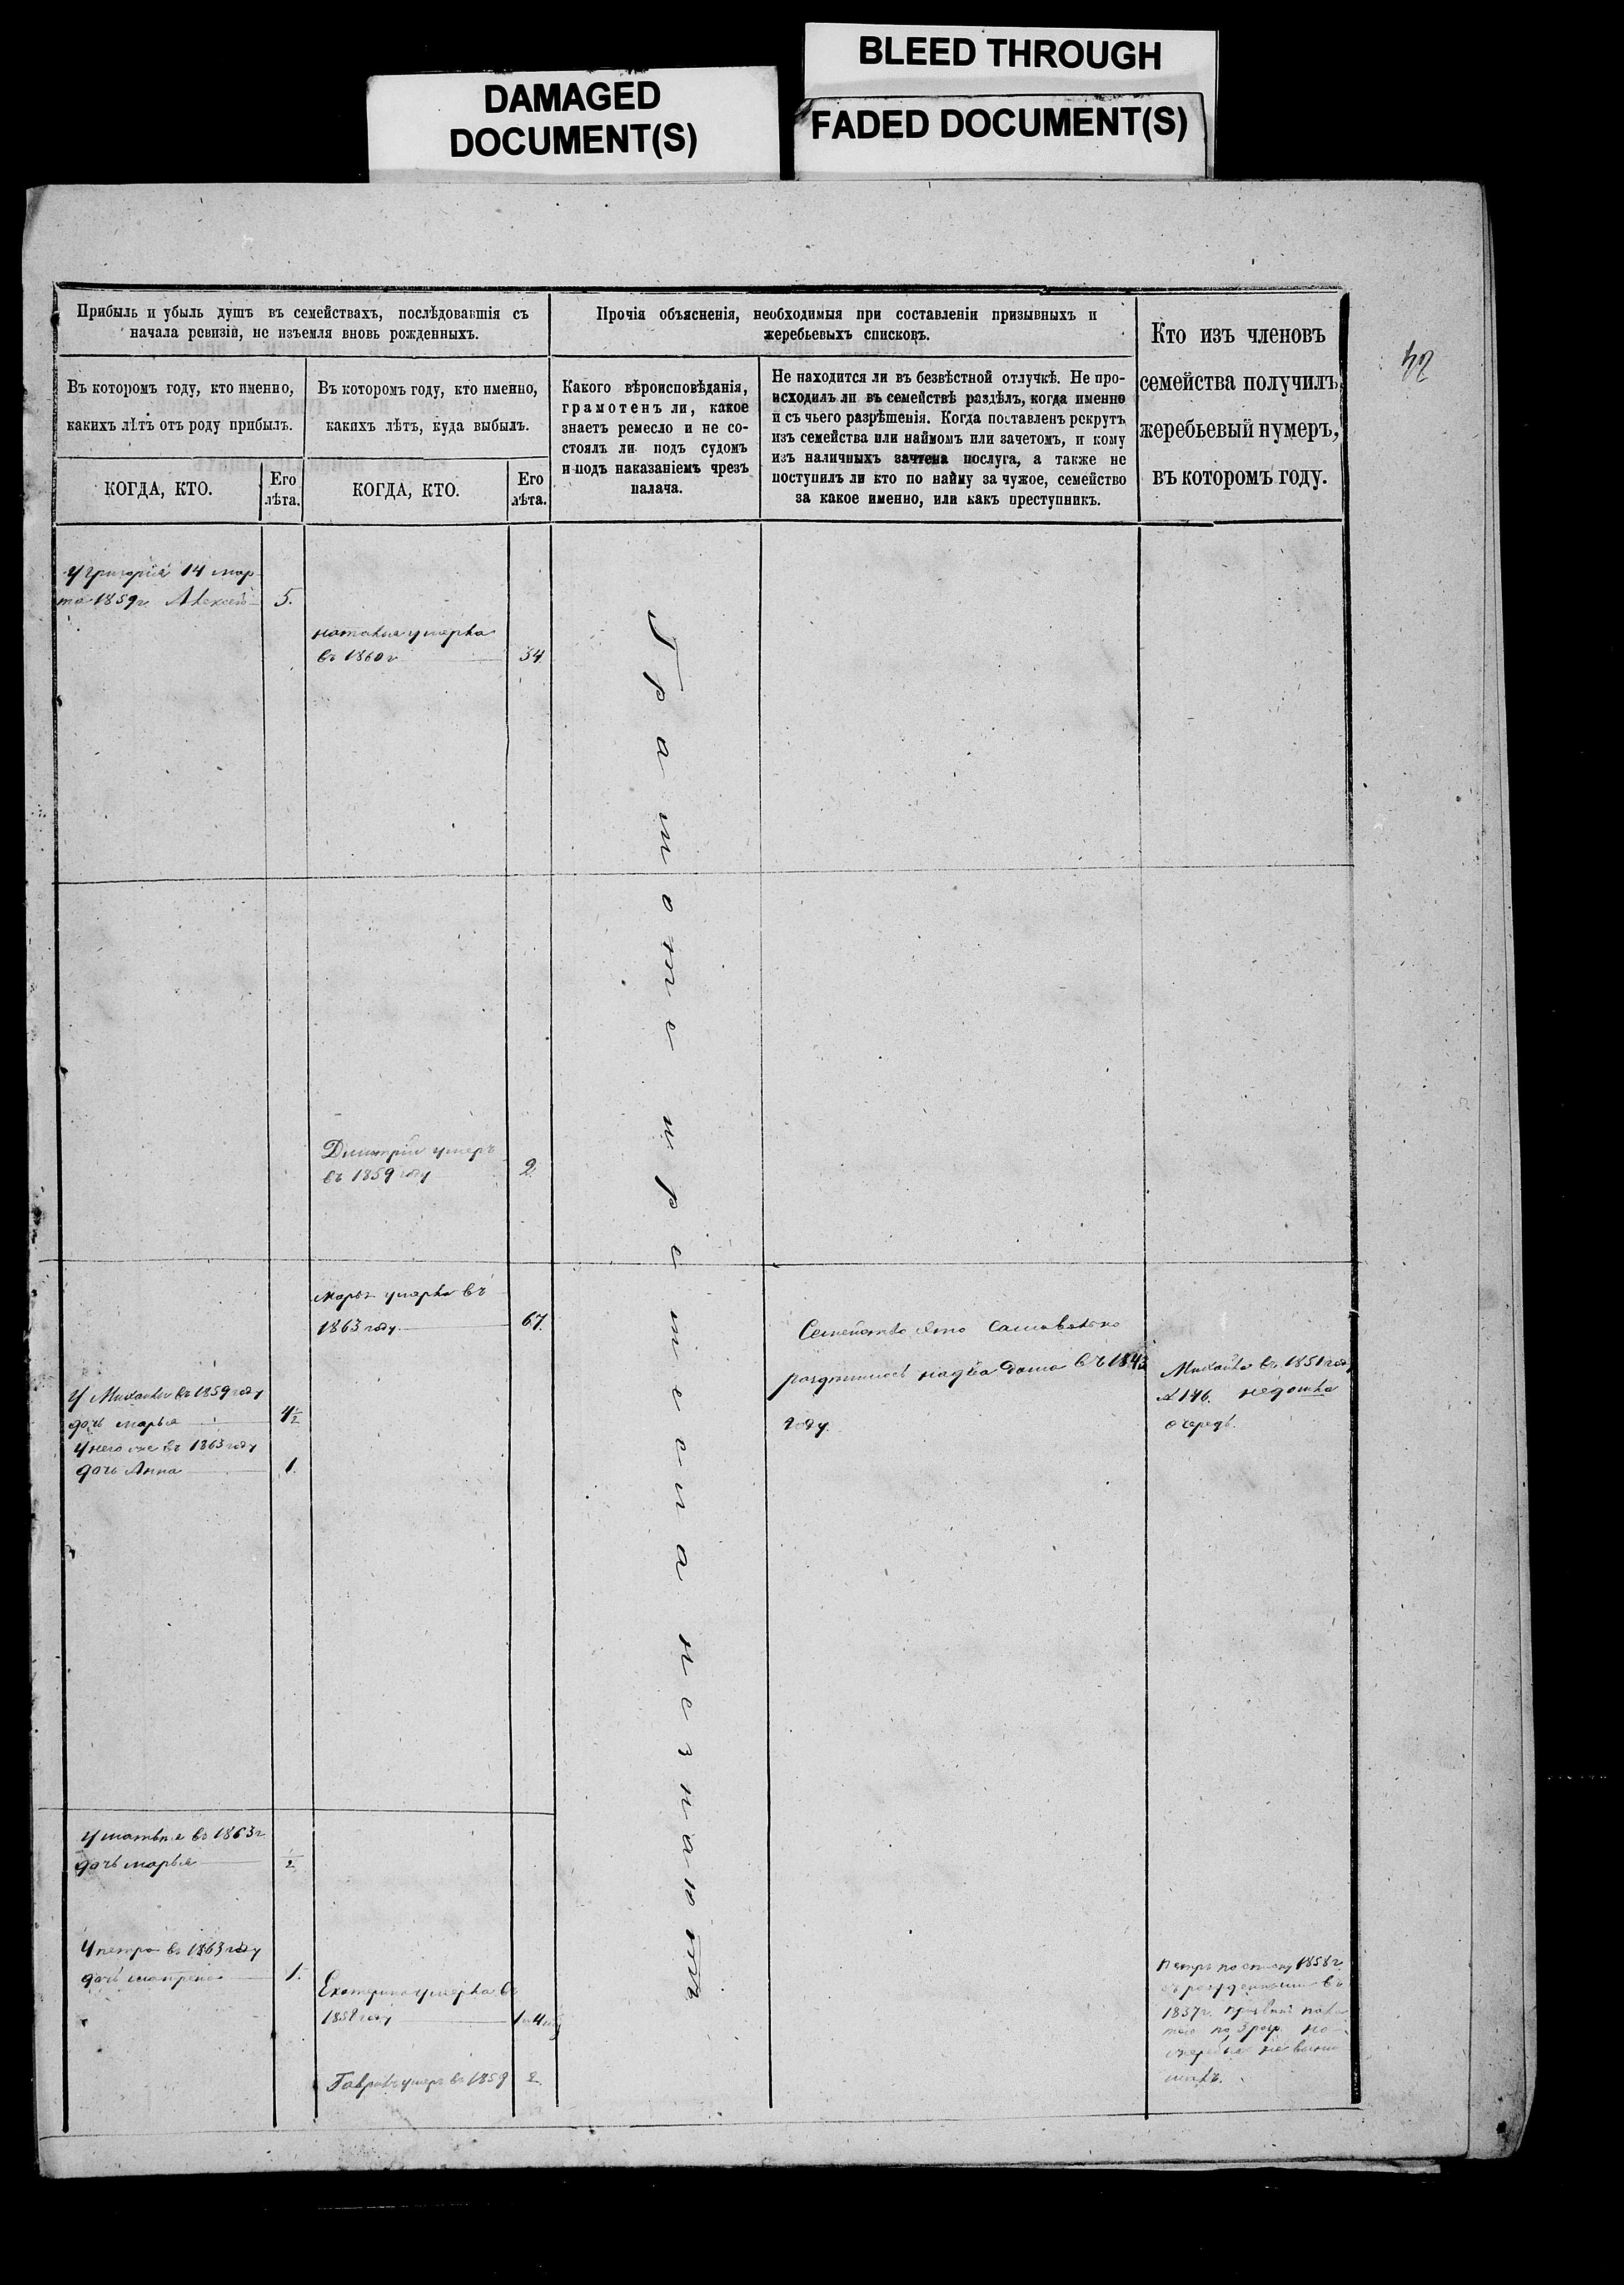 DAMAGED
DOCUMENT(S)
BLEED THROUGH
FADED DOCUMENT(S)
Прибыль и убыль душъ въ семействахъ, послѣдовавшія съ
начала ревизіи, не изъемля вновь рожденныхъ.
Въ которомъ году, кто именно,
какихъ лѣтъ отъ роду прибылъ.
Въ которомъ году, кто именно,
какихъ лѣтъ, куда выбылъ.
КОГДА, КТО.
Его
лѣта.
КОГДА, КТО.
Его
лѣта.
Прочія объясненія, необходимыя при составленіи призывныхъ и
жеребьевыхъ списковъ.
Какого вѣроисповѣданія,
грамотенъ ли, какое
знаетъ ремесло и не со-
стоялъ ли подъ судомъ
и подъ наказаніемъ чрезъ
палача.
Не находится ли въ безвѣстной отлучкѣ. Не про-
исходилъ ли въ семействѣ раздѣлъ, когда именно
и съ чьего разрѣшенія. Когда поставленъ рекрутъ
изъ семейства или наймомъ или зачетомъ, и кому
изъ наличныхъ зачтена послуга, а также не
поступилъ ли кто по найму за чужое, семейство
за какое именно, или какъ преступникъ.
Кто изъ членовъ
семейства получилъ
жеребьевый нумеръ,
въ которомъ году.
У Григорія 14 мар
та 1859г. Алексей 5.
наталия умерла
въ 1860 г 34
Дмитрій умеръ
въ 1859 году 2
Марья умерла въ
1863 году. 67.
У Михайлы въ 1859 году
дочь марья 4½
У него же въ 1863 году
дочь Анна 1.
Семейство это самовольно
раздѣлилось на два дома въ 1843
году.
Михайла въ 1851 году
№ 146. недошла
очередь.
У матвея въ 1863 г
дочь марья ½
У петра въ 1863 году
дочь матрена 1.
Екатерина умерла въ
1858 году
Гаврилъ умеръ въ 1859 2
Петръ по списку 1858 г.
1837 г.
по 3 разр. но
жеребья не выни
малъ.
Грамоте и ремесла незнаютъ